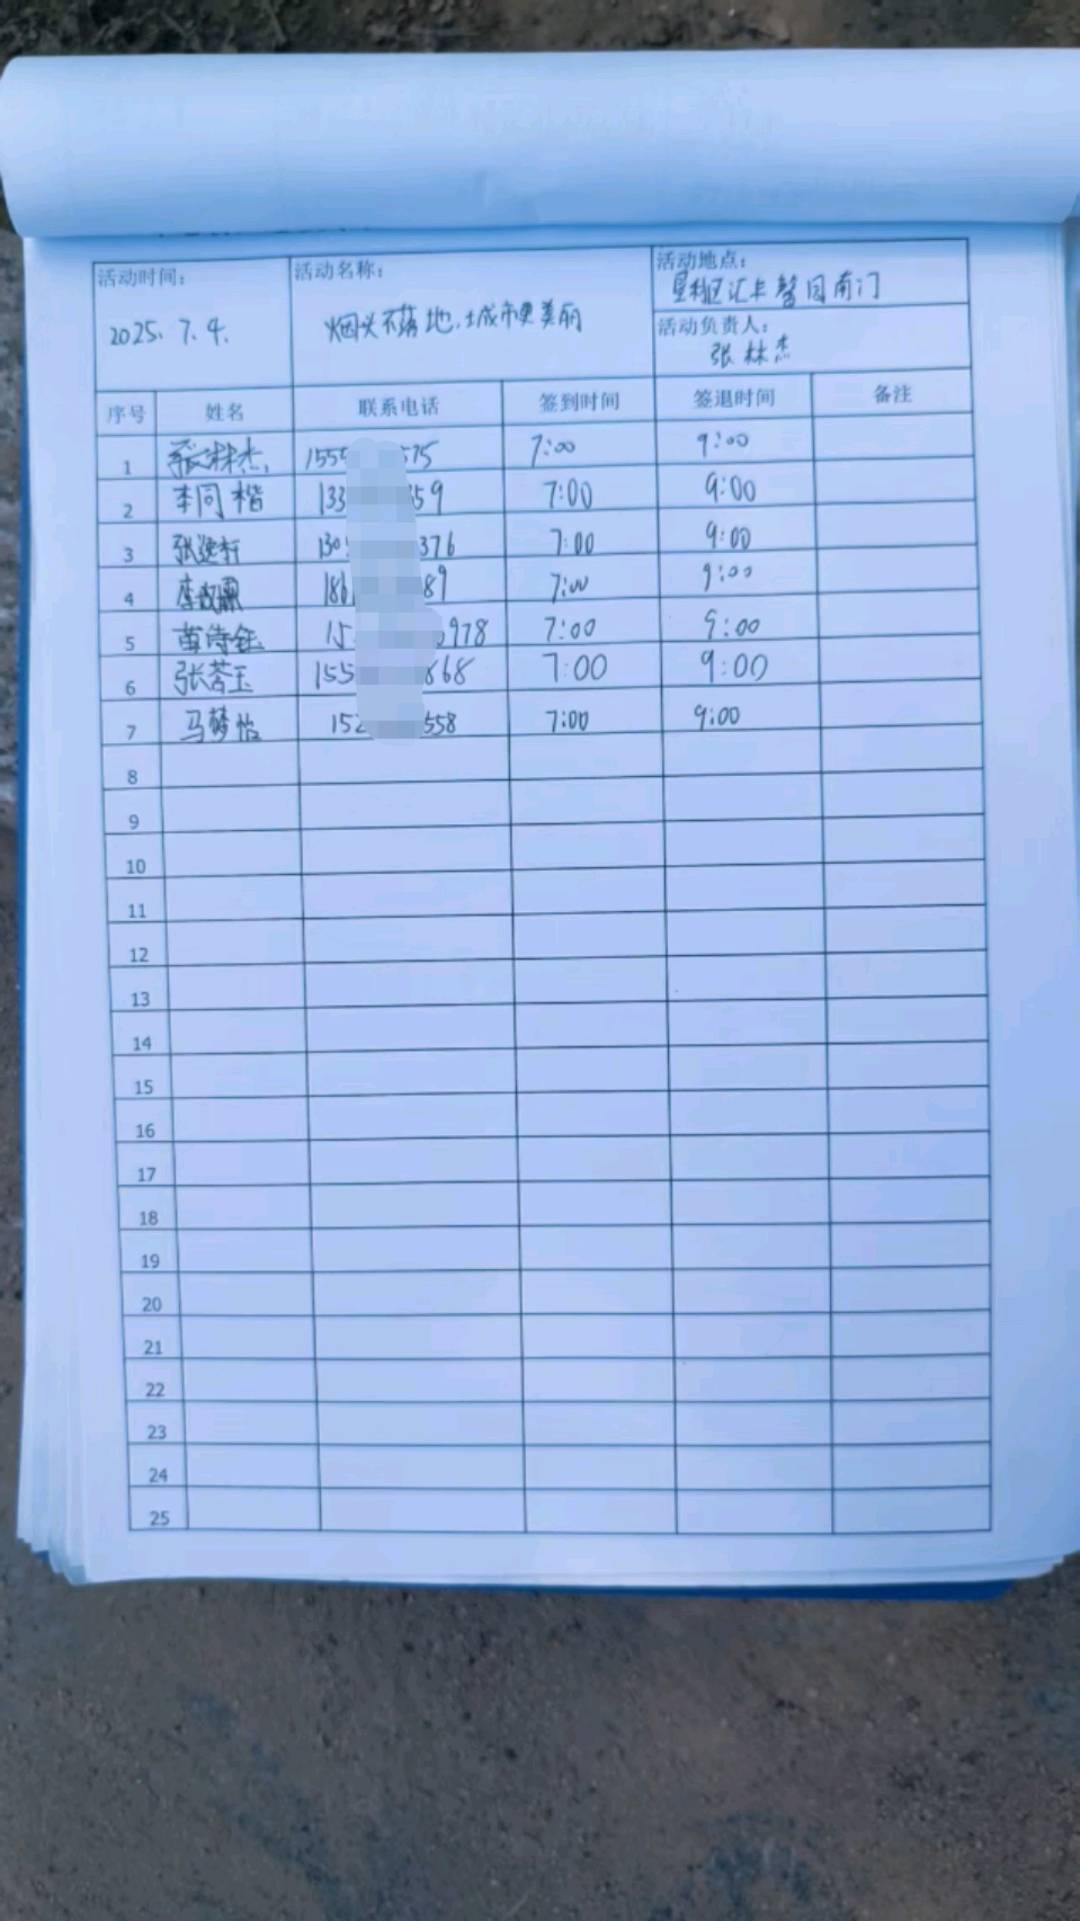 活动时间：
2025. 7. 4.
活动名称：
烟头不落地，城市更美丽
活动地点：
垦利区汇丰馨园南门
活动负责人：
张林杰
序号 姓名 联系电话 签到时间 签退时间 备注
1 张林杰 1555 575 7:00 9:00
2 李同楷 133 359 7:00 9:00
3 张逸轩 130 376 7:00 9:00
4 186 89 7:00 9:00
5 苗诗钰 15 978 7:00 9:00
6 张若玉 155 868 7:00 9:00
7 马梦怡 152 558 7:00 9:00
8
9
10
11
12
13
14
15
16
17
18
19
20
21
22
23
24
25